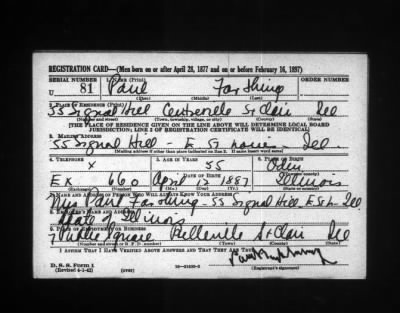 REGISTRATION CARD—(Men born on or after April 28, 1877 and on or before February 16, 1897)
SERIAL NUMBER 1. NAME (Print) ORDER NUMBER
U 81 Paul Farthing
(First) (Middle) (Last)
2. PLACE OF RESIDENCE (Print)
55 Signal Hill Centreville St Clair Ill
(Number and street) (Town, township, village, or city) (County) (State)
[THE PLACE OF RESIDENCE GIVEN ON THE LINE ABOVE WILL DETERMINE LOCAL BOARD
JURISDICTION; LINE 2 OF REGISTRATION CERTIFICATE WILL BE IDENTICAL]
3. MAILING ADDRESS
55 Signal Hill E St Louis Ill.
[Mailing address if other than place indicated on line 2. If same insert word same]
4. TELEPHONE 5. AGE IN YEARS 6. PLACE OF BIRTH
x 55 Odin
DATE OF BIRTH
Ex 660 April 12 1887 Illinois
7. NAME AND ADDRESS OF PERSON WHO WILL ALWAYS KNOW YOUR ADDRESS
Mrs Paul Farthing - 55 Signal Hill, E St L. Ill
8. EMPLOYER'S NAME AND ADDRESS
State of Illinois
9. PLACE OF EMPLOYMENT OR BUSINESS
Public Square Belleville St Clair Ill
(Number and street or R. F. D. number) (Town) (County) (State)
I AFFIRM THAT I HAVE VERIFIED ABOVE ANSWERS AND THAT THEY ARE TRUE.
D. S. S. Form 1
(Revised 4-1-42) (over) Paul Farthing
(Registrant's signature)